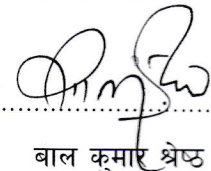 बाल कुमार श्रेष्ठ